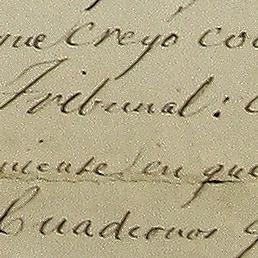 que creyó co
Tribunal:
niente en que
Cuadernos